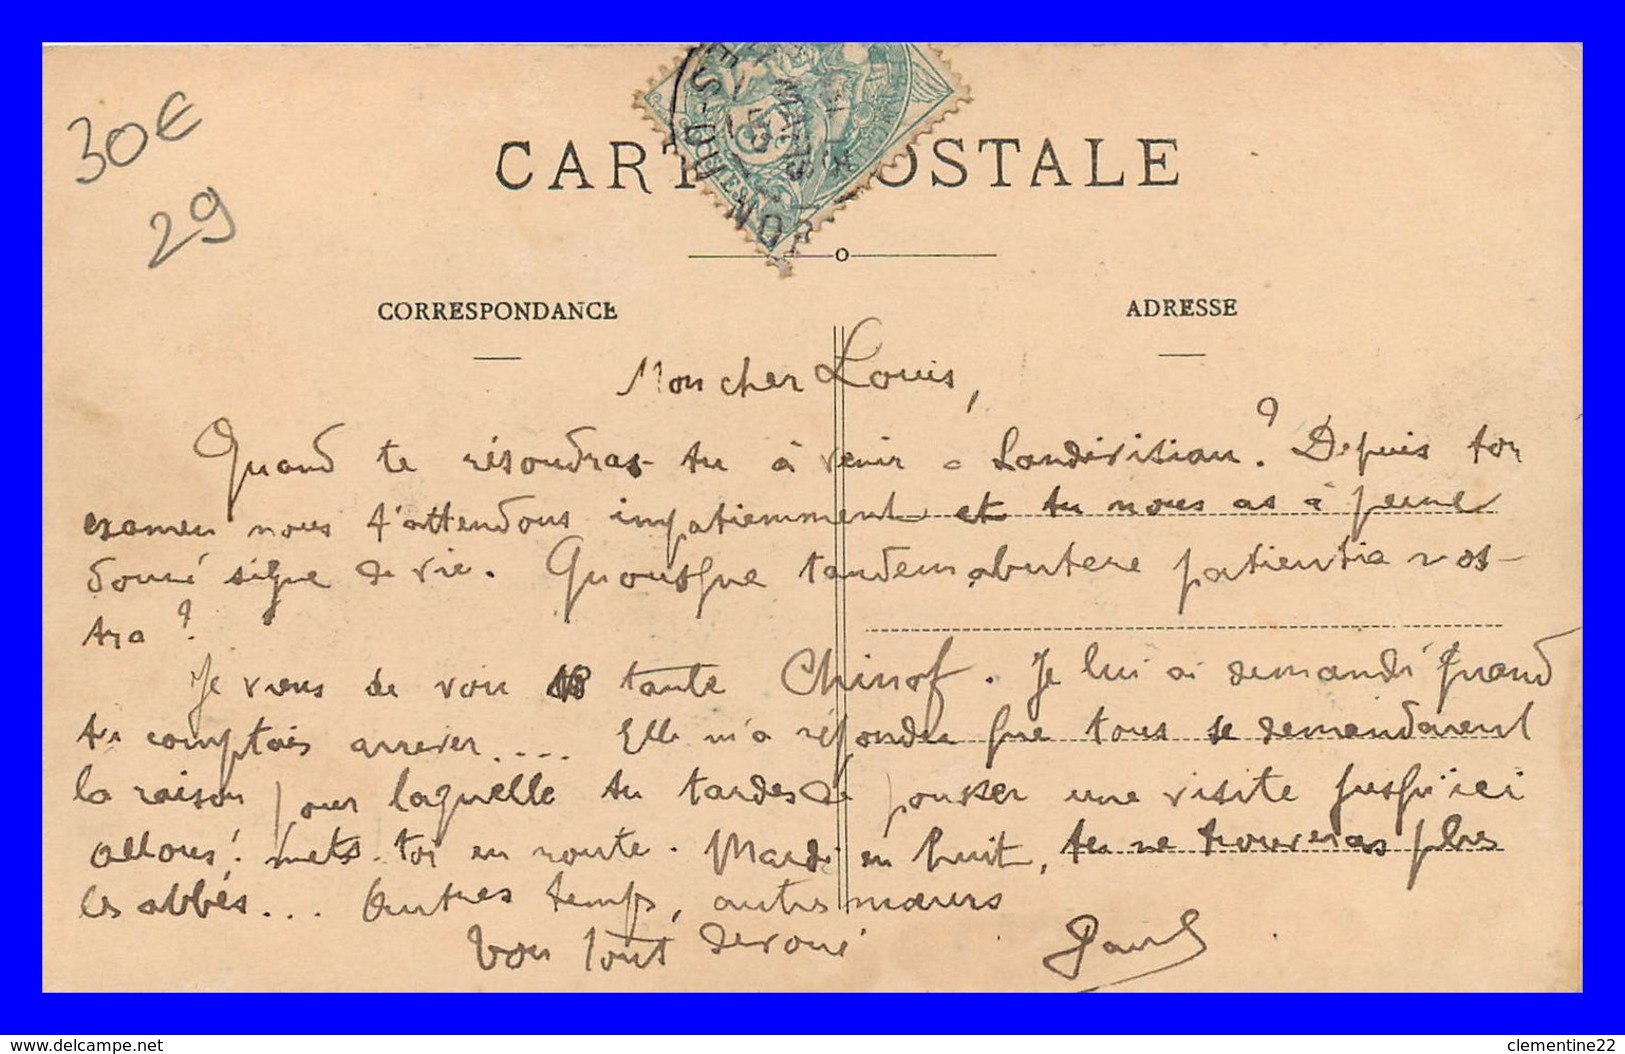 30€
29
CARTE POSTALE
CORRESPONDANCE
ADRESSE
Mon cher Louis,
Quand te résoudras-tu à venir à Landivisiau? Depuis ton
examen nous t'attendons impatiemment et tu nous as à peine
donné signe de vie. Quousque tandem abutere patientia nos-
tra?
Je viens de voir ta tante Chinof. Je lui ai demandé quand
tu comptais arriver.... Elle m'a répondu que tous se demandaient
la raison pour laquelle tu tardes de pousser une visite jusqu'ici
allons! mets-toi en route. Mardi en huit, tu ne trouveras plus
les abbés... Autres temps, autres mœurs
Ton tout dévoué Paul
www.delcampe.net
clementine22